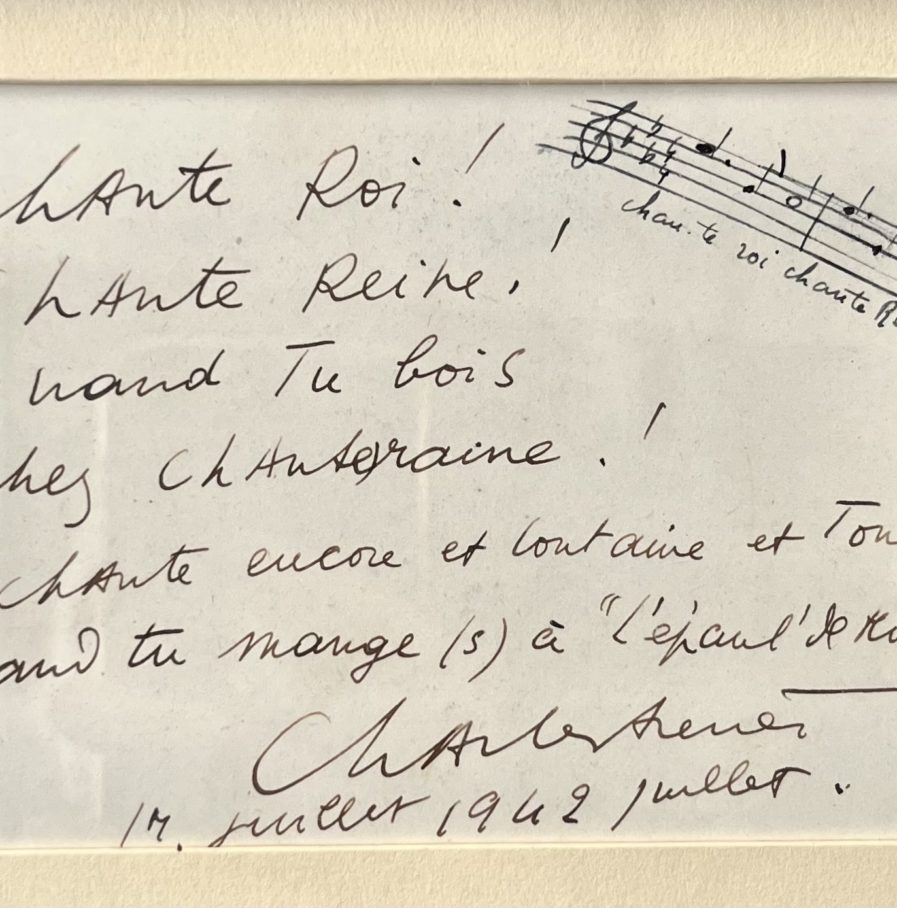 chan-te roi chante R
hante Roi !
hante Reine !
uand Tu bois
hez Chanteraine !
chante encore et lontaine et Ton
and tu mange (s) à "l'épaul' de
Charles Trenet
17. juillet 1942 juillet.